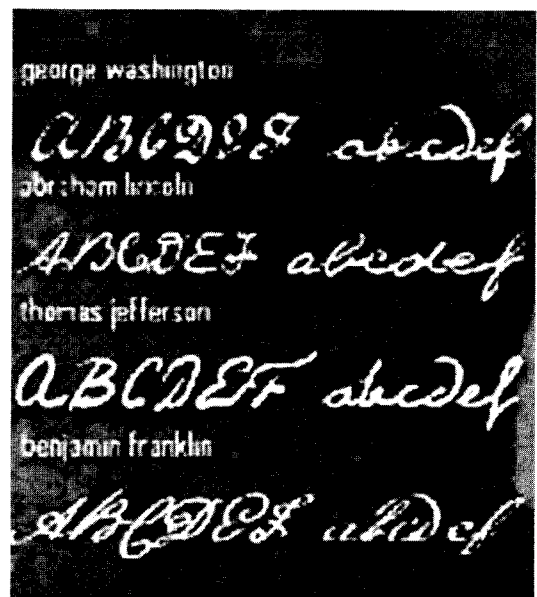 george washington
ABCDEF abcdef
abraham lincoln
ABCDEF abcdef
thomas jefferson
ABCDEF abcdef
benjamin franklin
ABCDEF abcdef